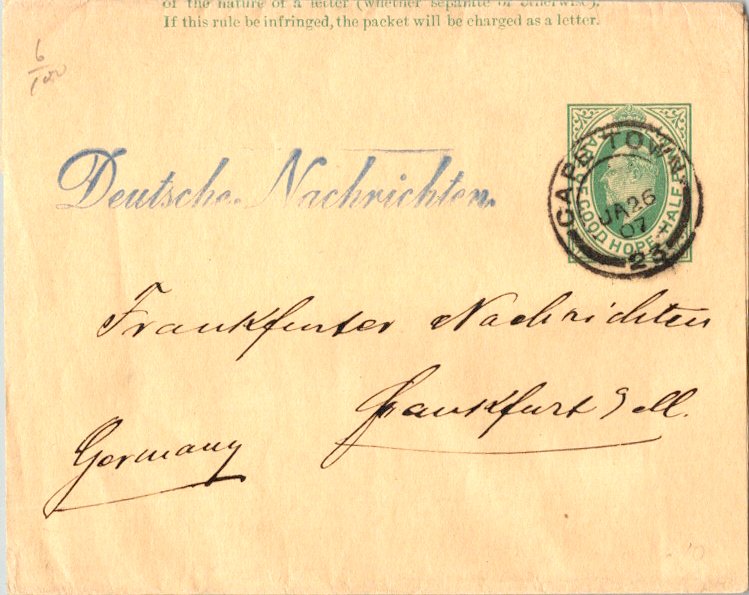 of the nature of a letter (whether separate or otherwise).
If this rule be infringed, the packet will be charged as a letter.
6
CAPE OF GOOD HOPE · HALF
CAPE TOWN
JA 26
07
23
Deutsche Nachrichten.
Frankfurter Nachrichten
Frankfurt a M.
Germany